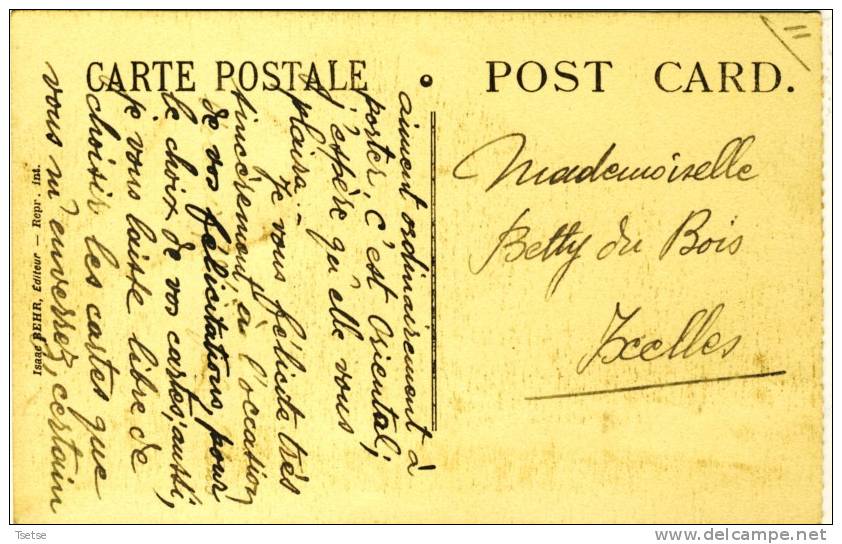 CARTE POSTALE
POST CARD.
Mademoiselle
Betty du Bois
Ixelles
aiment ordinairement à
porter, c'est Oriental;
j'espère qu'elle vous
plaira..-
Je vous félicite très
sincèrement, à l'occasion
de vos félicitations, pour
le choix de vos cartes; aussi,
je vous laisse libre de
choisir les cartes que
vous m'enverrez, certain
Isaac BEHR, Éditeur — Repr. int.
Tsetse
delcampe.net